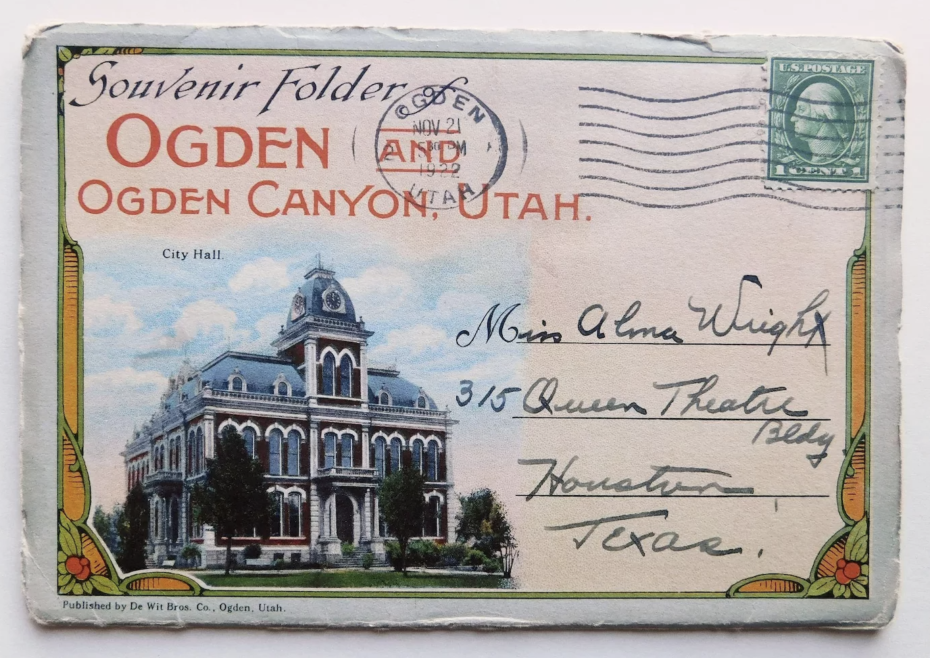 Souvenir Folder of
OGDEN AND
OGDEN CANYON, UTAH.
OGDEN
NOV 21
PM
1922
UTAH
U.S. POSTAGE
1 CENT 1
City Hall.
Miss Alma Wright
315 Queen Theatre
Bldg
Houston
Texas.
Published by De Wit Bros. Co., Ogden, Utah.